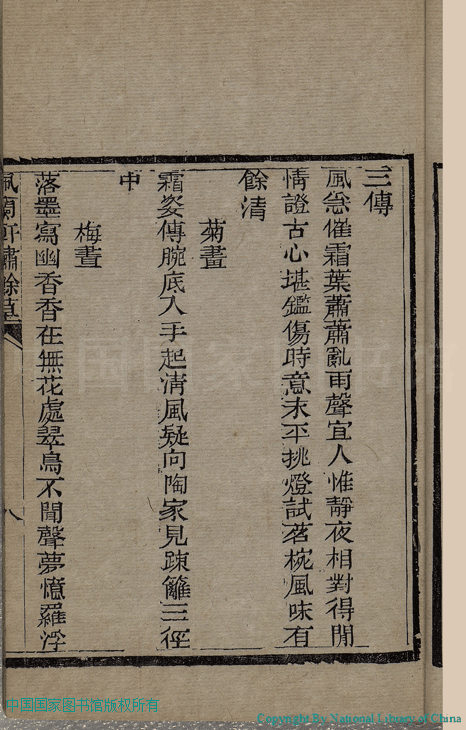 三傳
風急催霜葉蕭蕭亂雨聲宜人惟靜夜相對得閒
情證古心堪鑑傷時意未平挑燈試茗椀風味有
餘清
菊畫
霜姿傳腕底入手起清風疑向陶家見疎籬三徑
中
梅畫
落墨寫幽香香在無花處翠鳥不聞聲夢憶羅浮
佩蘭軒繡餘草
八
中国国家图书馆版权所有
Copyright By National Library of China